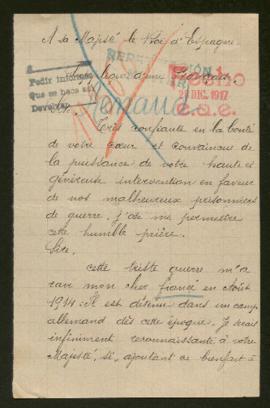 A sa Majesté le Roi d'Espagne.
Pedir informes
Que se haga
Devolver
Hecho
29 DIC. 1917
Sire
Très confiante en la bonté
de votre cœur et convaincue de
la puissance de votre haute et
généreuse intervention en faveur
de nos malheureux prisonniers
de guerre, j'ose me permettre
cette humble prière.
Sire,
cette triste guerre m'a
ravi mon cher fiancé en Août
1914 il est détenu dans un camp
allemand dès cette époque. Je serais
infiniment reconnaissante à votre
Majesté, si, ajoutant ce bienfait à